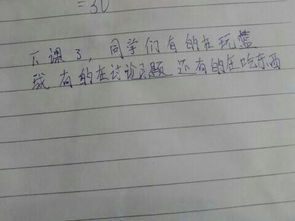 =30
下课了，同学们有的在玩篮
球有的在讨论问题 还有的在吃东西